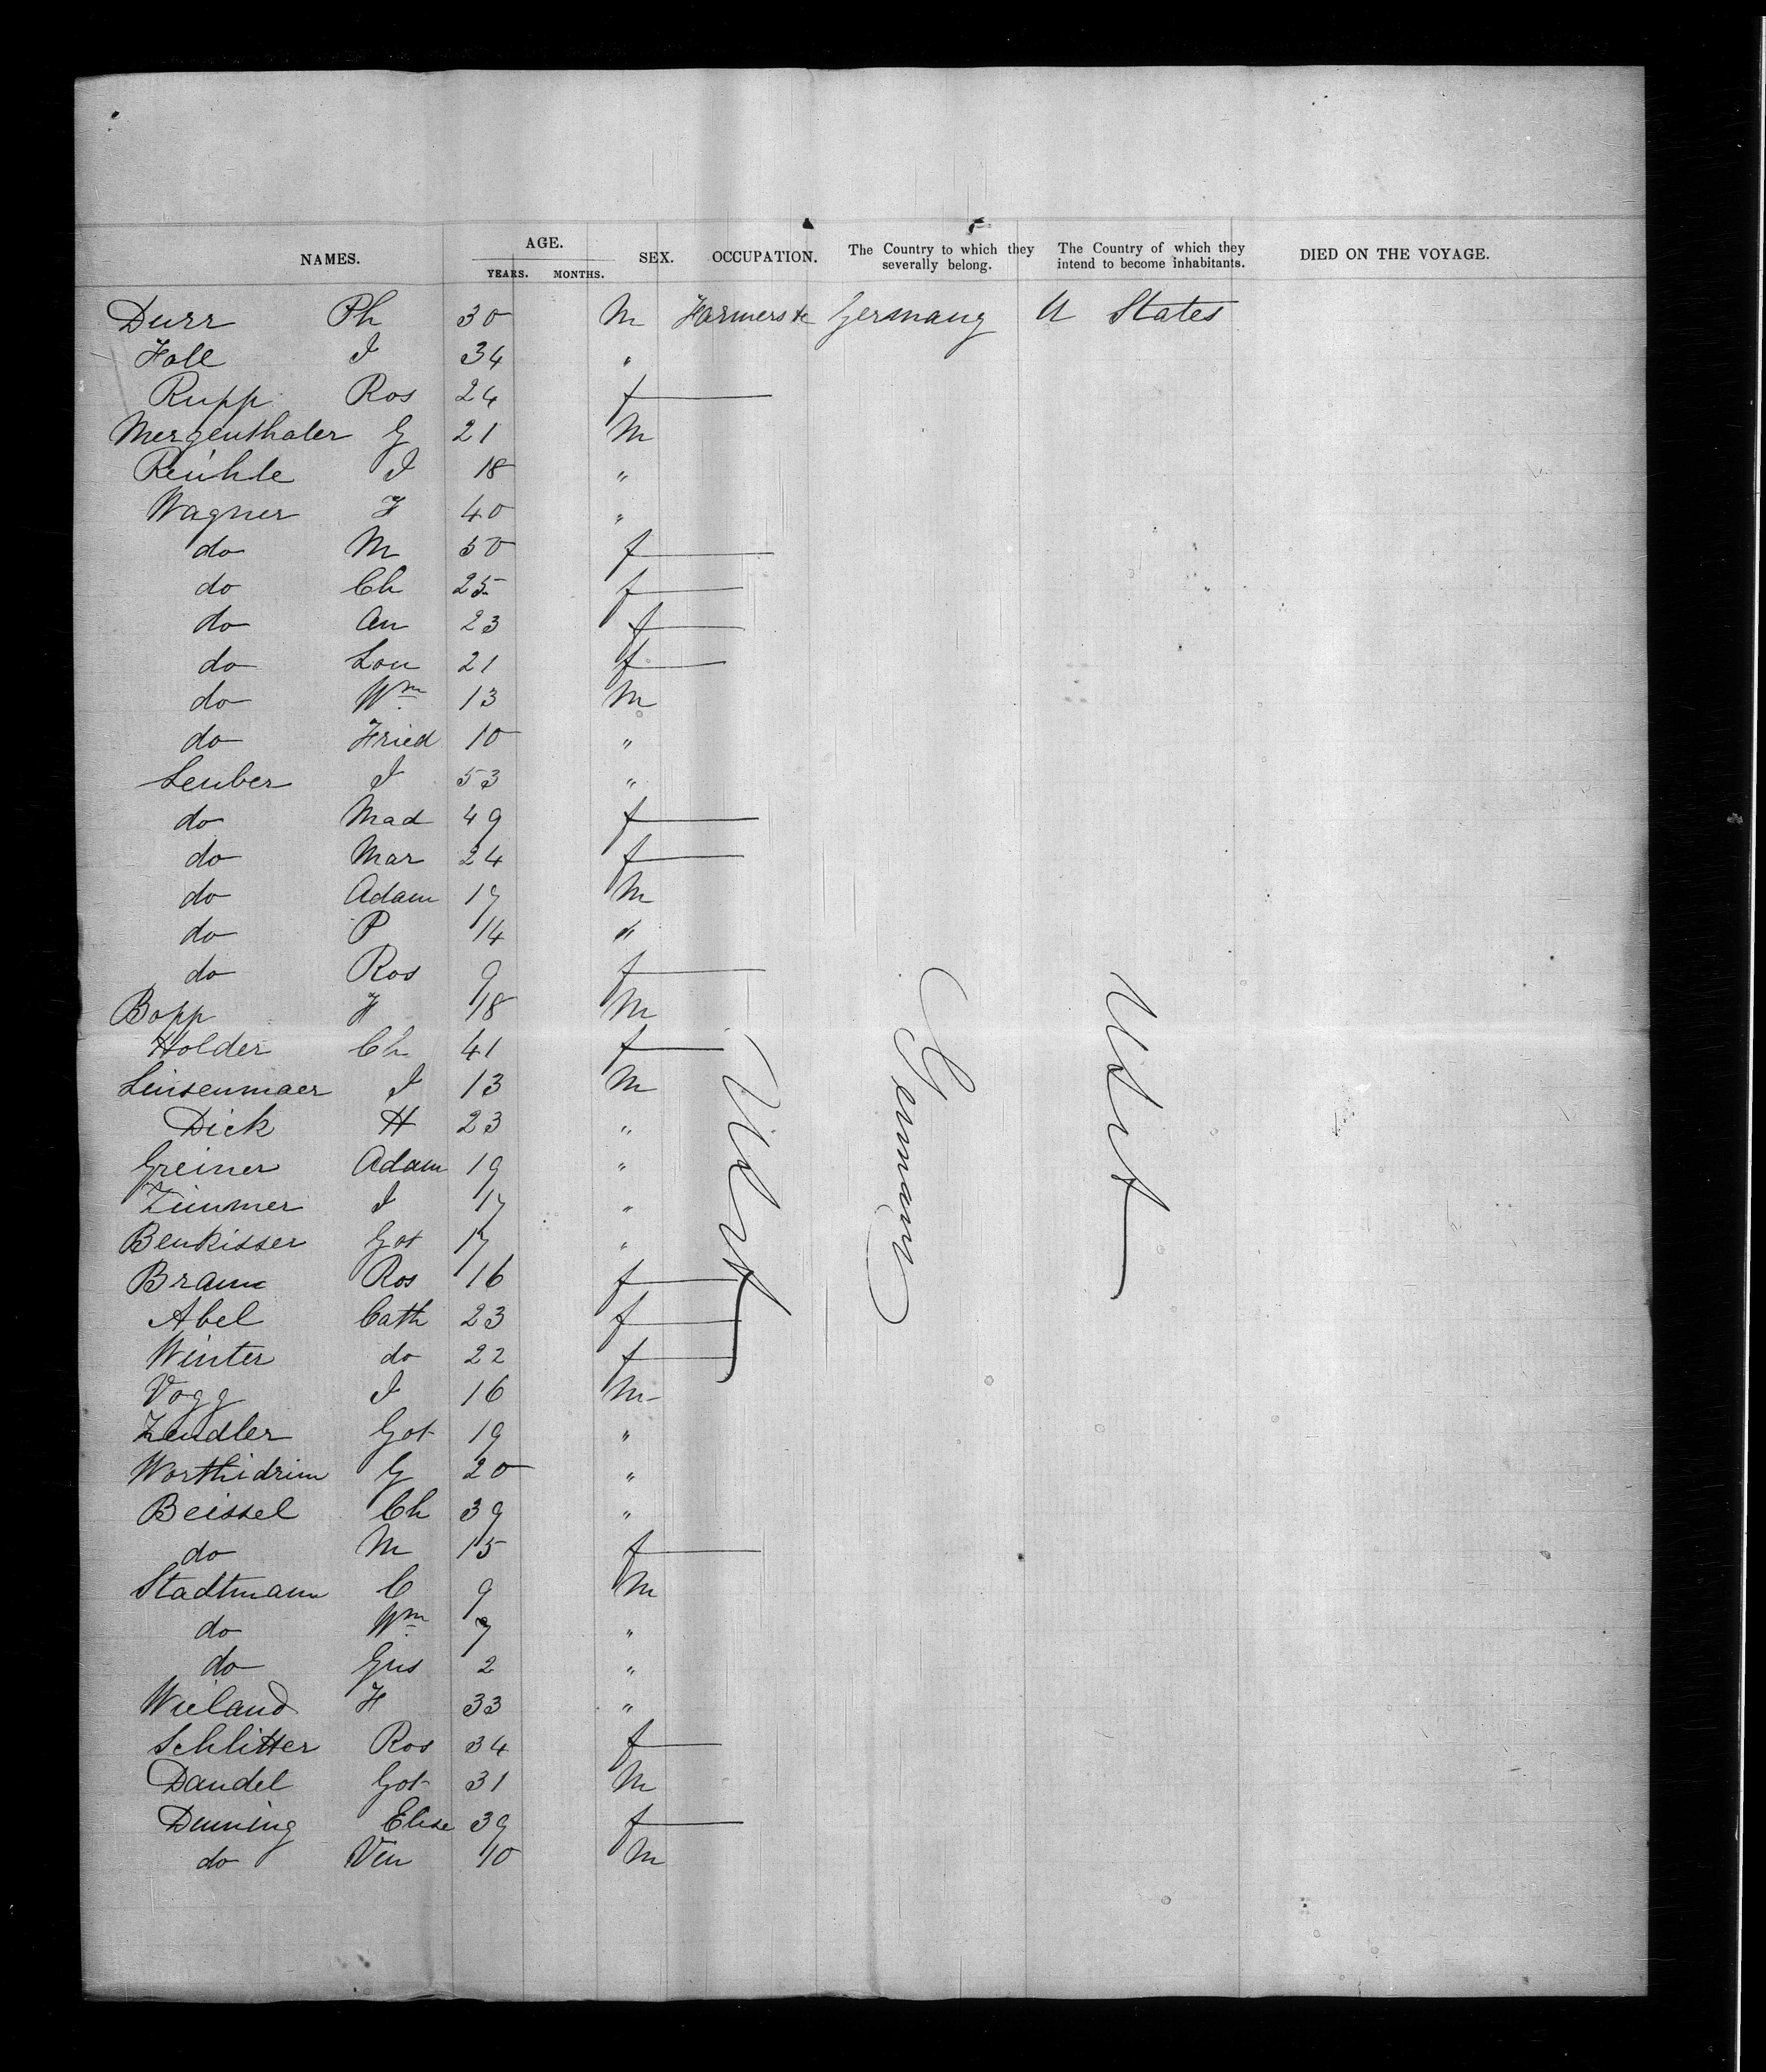 NAMES. AGE. YEARS. MONTHS. SEX. OCCUPATION. The Country to which they severally belong. The Country of which they intend to become inhabitants. DIED ON THE VOYAGE.
Durr Ph 30 M Farmers &c Germany U States
Holl J 34 "
Rupp Ros 24 f
Mergenthaler G 21 M
Reühle J 18 "
Wagner F 40 "
do M 50 f
do Ch 25 f
do An 23 f
do Lou 21 f
do Wm 13 M
do Fried 10 "
Leuber J 53 "
do Mad 49 f
do Mar 24 f
do Adam 17 M
do P 14 "
do Ros 9 f
Bopp F 18 M
Holder Ch 41 f
Linsenmaer J 13 M
Dick H 23 "
Greiner Adam 19 "
Zimmer J 17 "
Benkisser Got 17 "
Braun Ros 16 f
Abel Cath 23 f
Winter do 22 f
Vogg J 16 M
Zendler Got 19 "
Worthidrim G 20 "
Beissel Ch 39 "
do M 15 f
Stadtmann C 9 M
do Wm 7 "
do Gus 2 "
Wieland F 33 "
Schlitter Ros 34 f
Dandel Got 31 M
Dunning Elise 39 f
do Ven 10 M
Germany